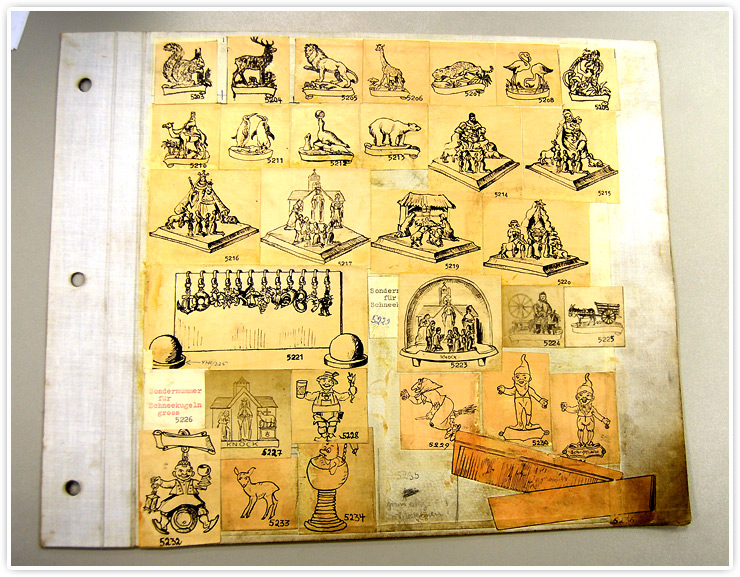 5203
5204
5205
5206
5207
5208
5209
5210
5211
5212
5213
5214
5215
5216
5217
5219
5220
5221
Sondernum
für
Schneeku
5222
KNOCK
5223
5224
5225
Sondernummer
für
Schneekugeln
gross
5226
KNOCK
5227
5228
5229
5230
5232
5233
5234
5235